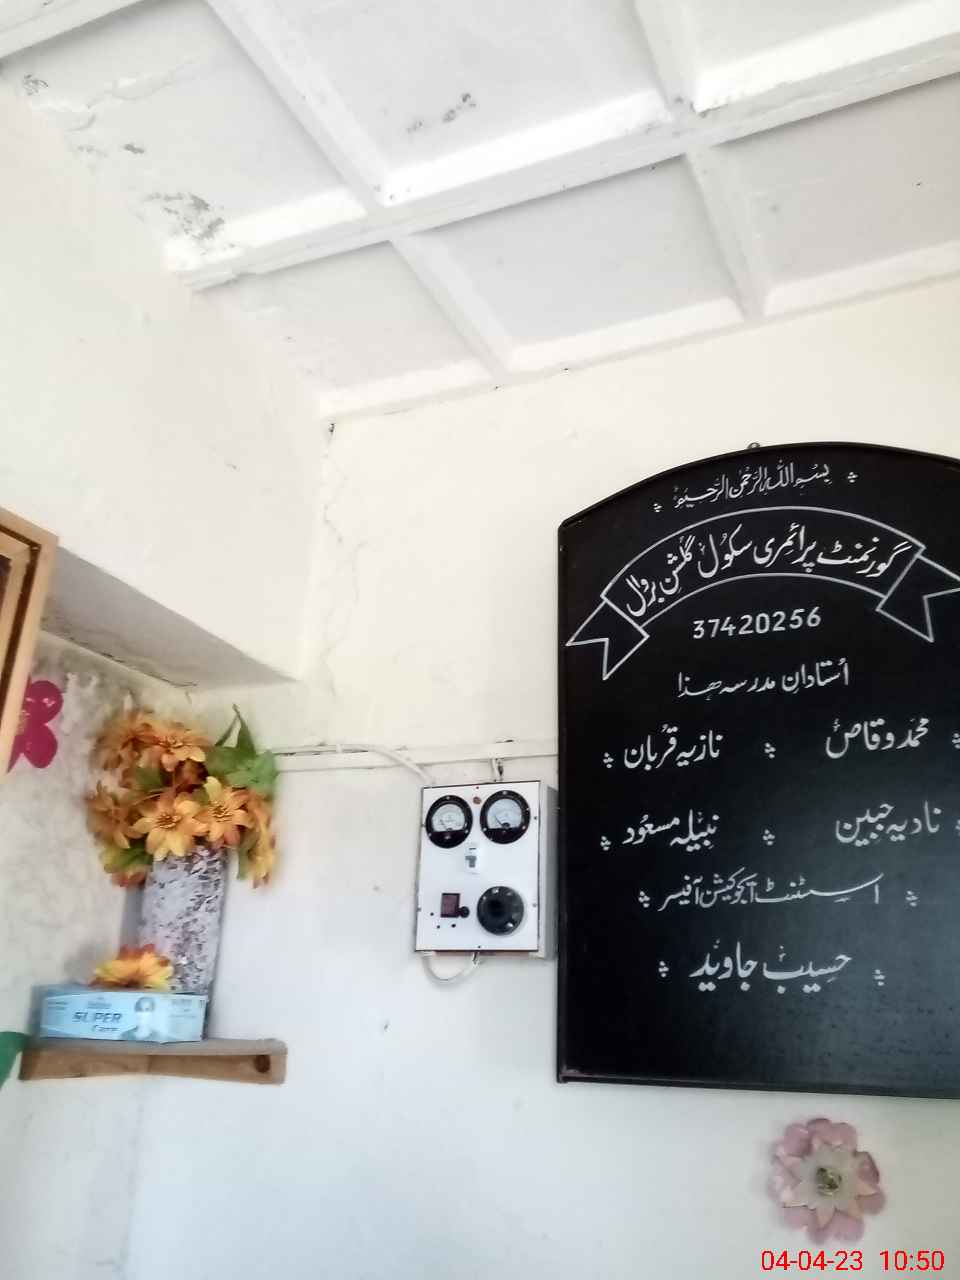 بسم اللہ الرحمن الرحیم
گورنمنٹ پرائمری سکول گلشن بڑوال
37420256
اُستادانِ مدرسہ ھذا
محمد وقاص نازیہ قُربان
نادیہ جبین نبیلہ مسعُود
اسسٹنٹ ایجوکیشن آفیسر
حسیب جاوید
SUPER
Care
04-04-23 10:50